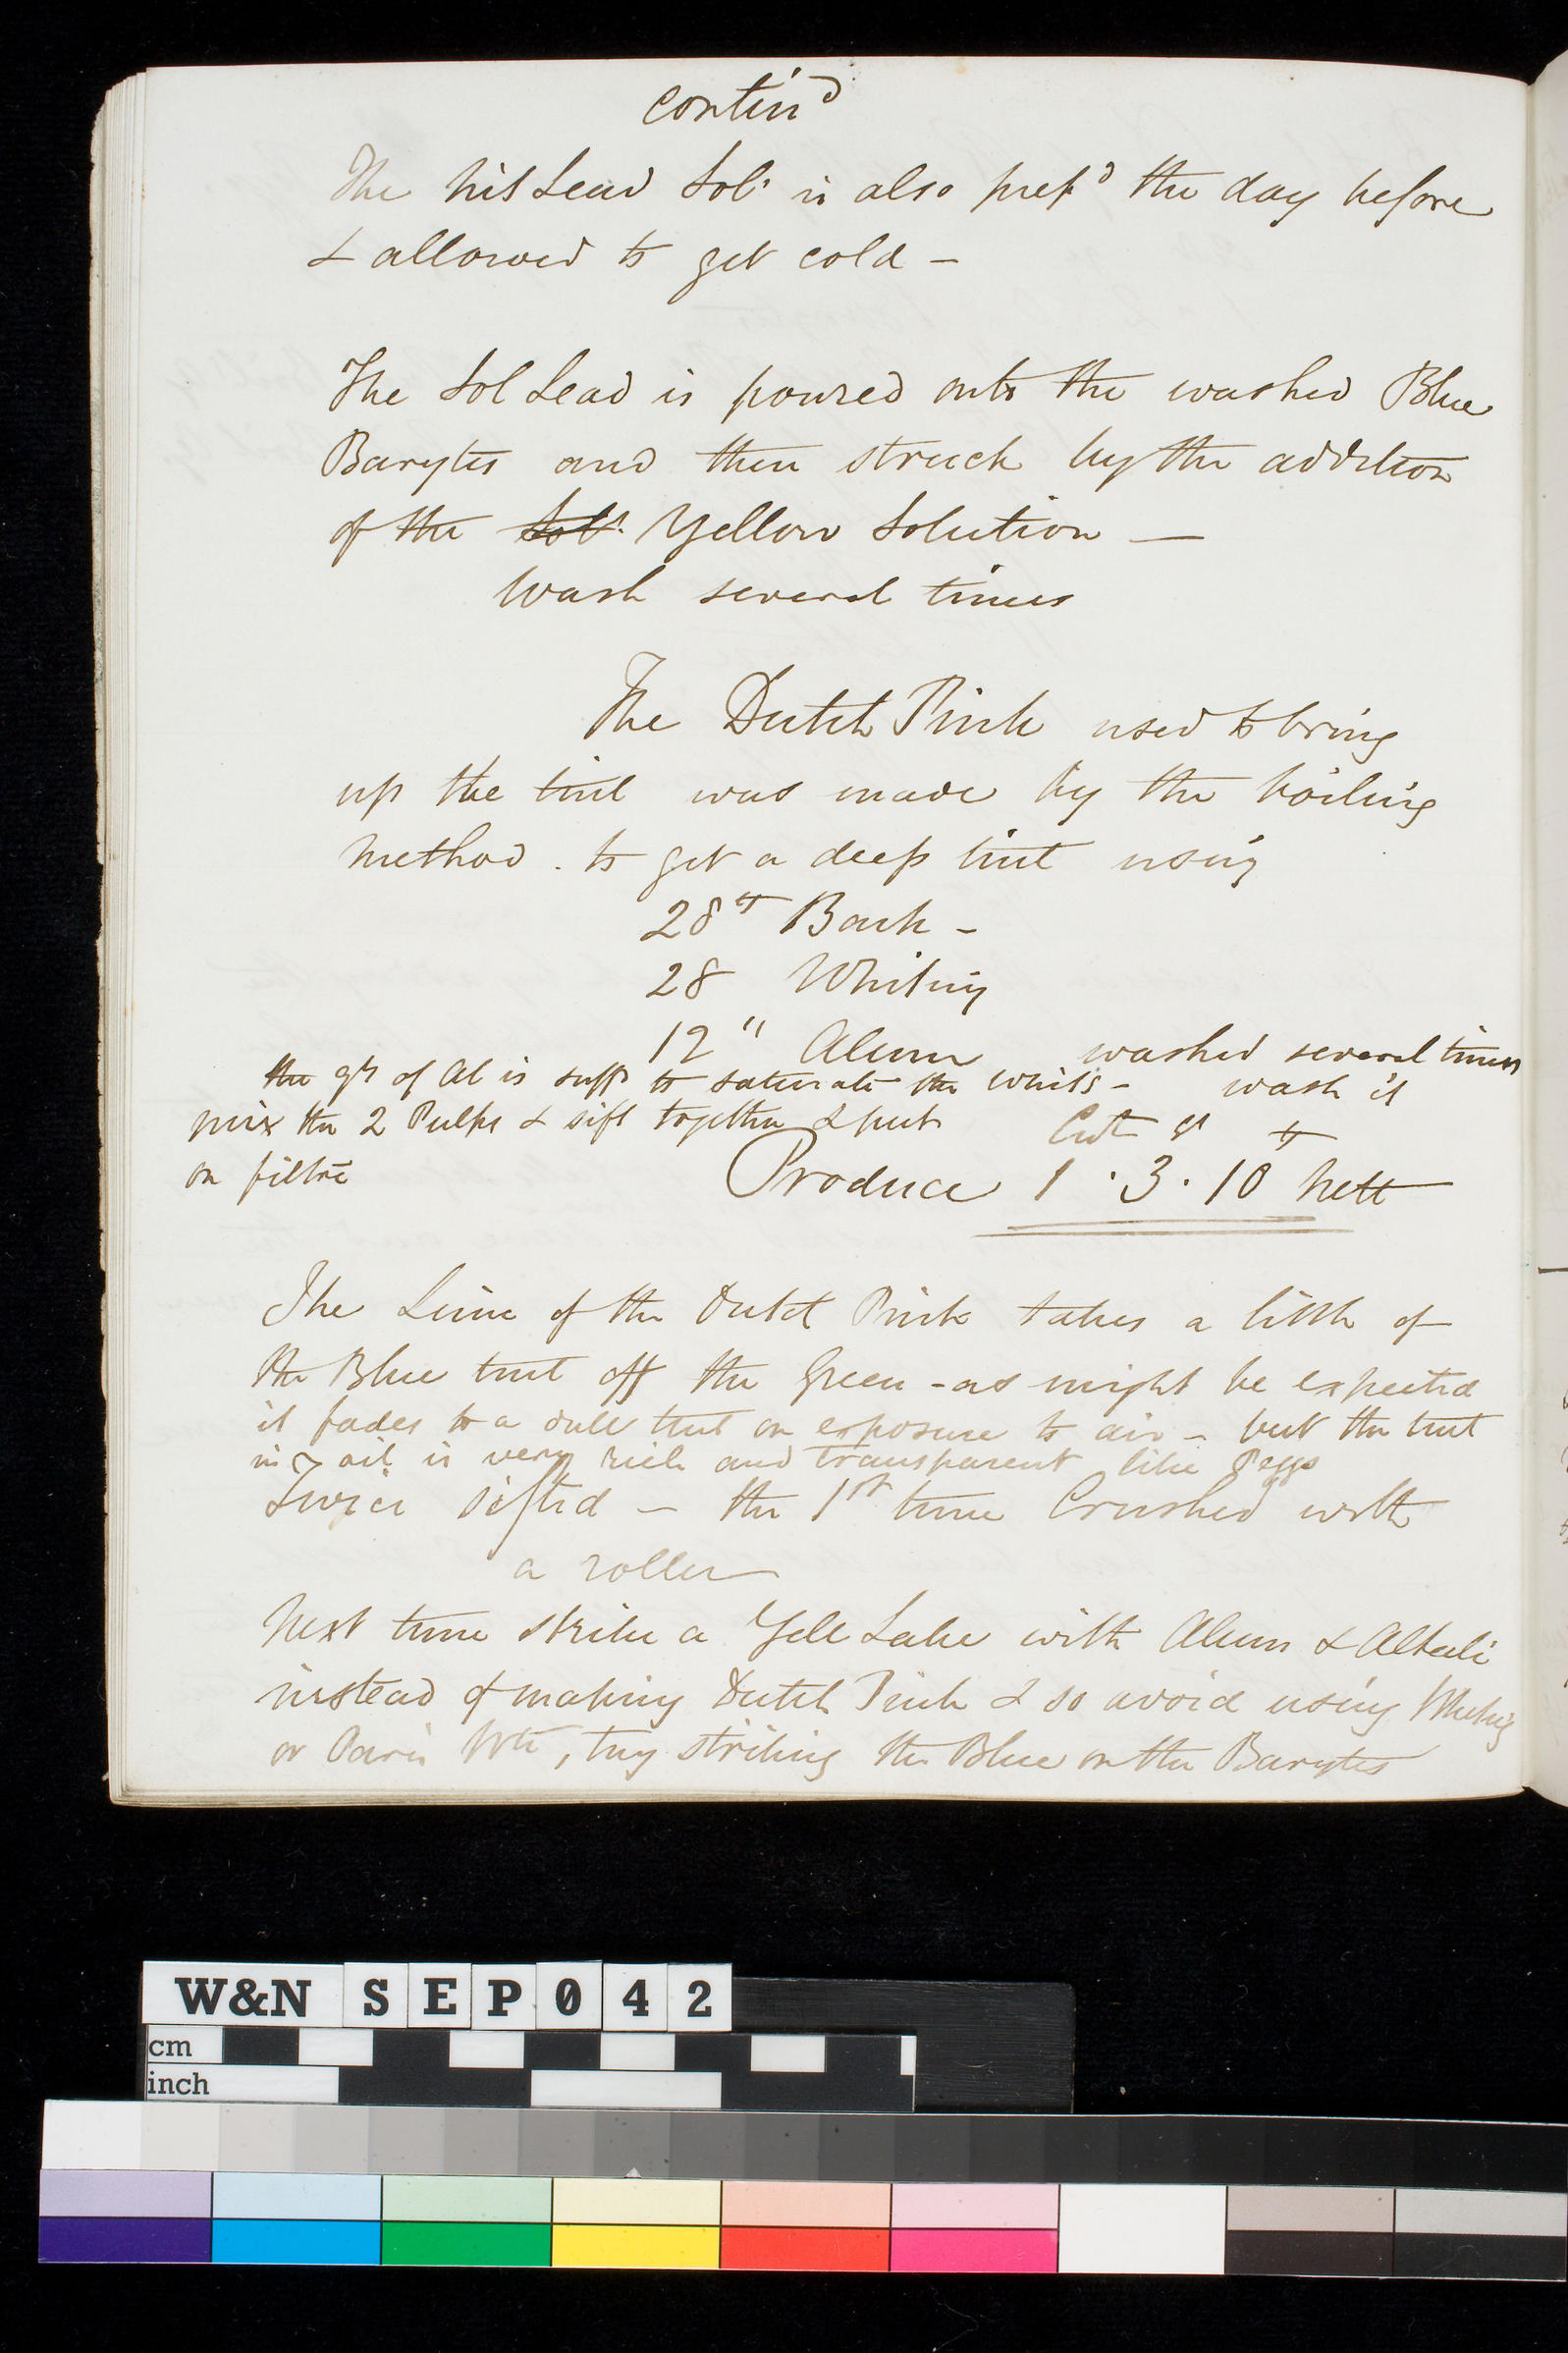 contind
The Nit Lead Sol. is also prepd the day before
& allowed to get cold -
The Sol Lead is poured onto the washed Blue
Barytes and then struck by the addition
of the Sol. Yellow Solution —
Wash several times
The Dutch Pink used to bring
up the tint was made by the boiling
Method. to get a deep tint using
28 lb Bark -
28 Whiting
12 " Alum washed several times
the qty of Al is suff to saturate the Whitg - wash it
mix the 2 Pulps & sift together & put
on filtre
Cwt qr lb
Produce 1 . 3 . 10 Nett
The Lime of the Dutch Pink takes a little of
the Blue tint off the Green - as might be expected
it fades to a dull tint on exposure to air - but the tint
in oil is very rich and transparent like
Twice sifted — the 1st time Crushed with
a roller
Next time strike a Yell Lake with Alum & Alkali
instead of making Dutch Pink & so avoid using Whiting
or Paris Wte, try striking the Blue on the Barytes
W&N SEP042
cm
inch